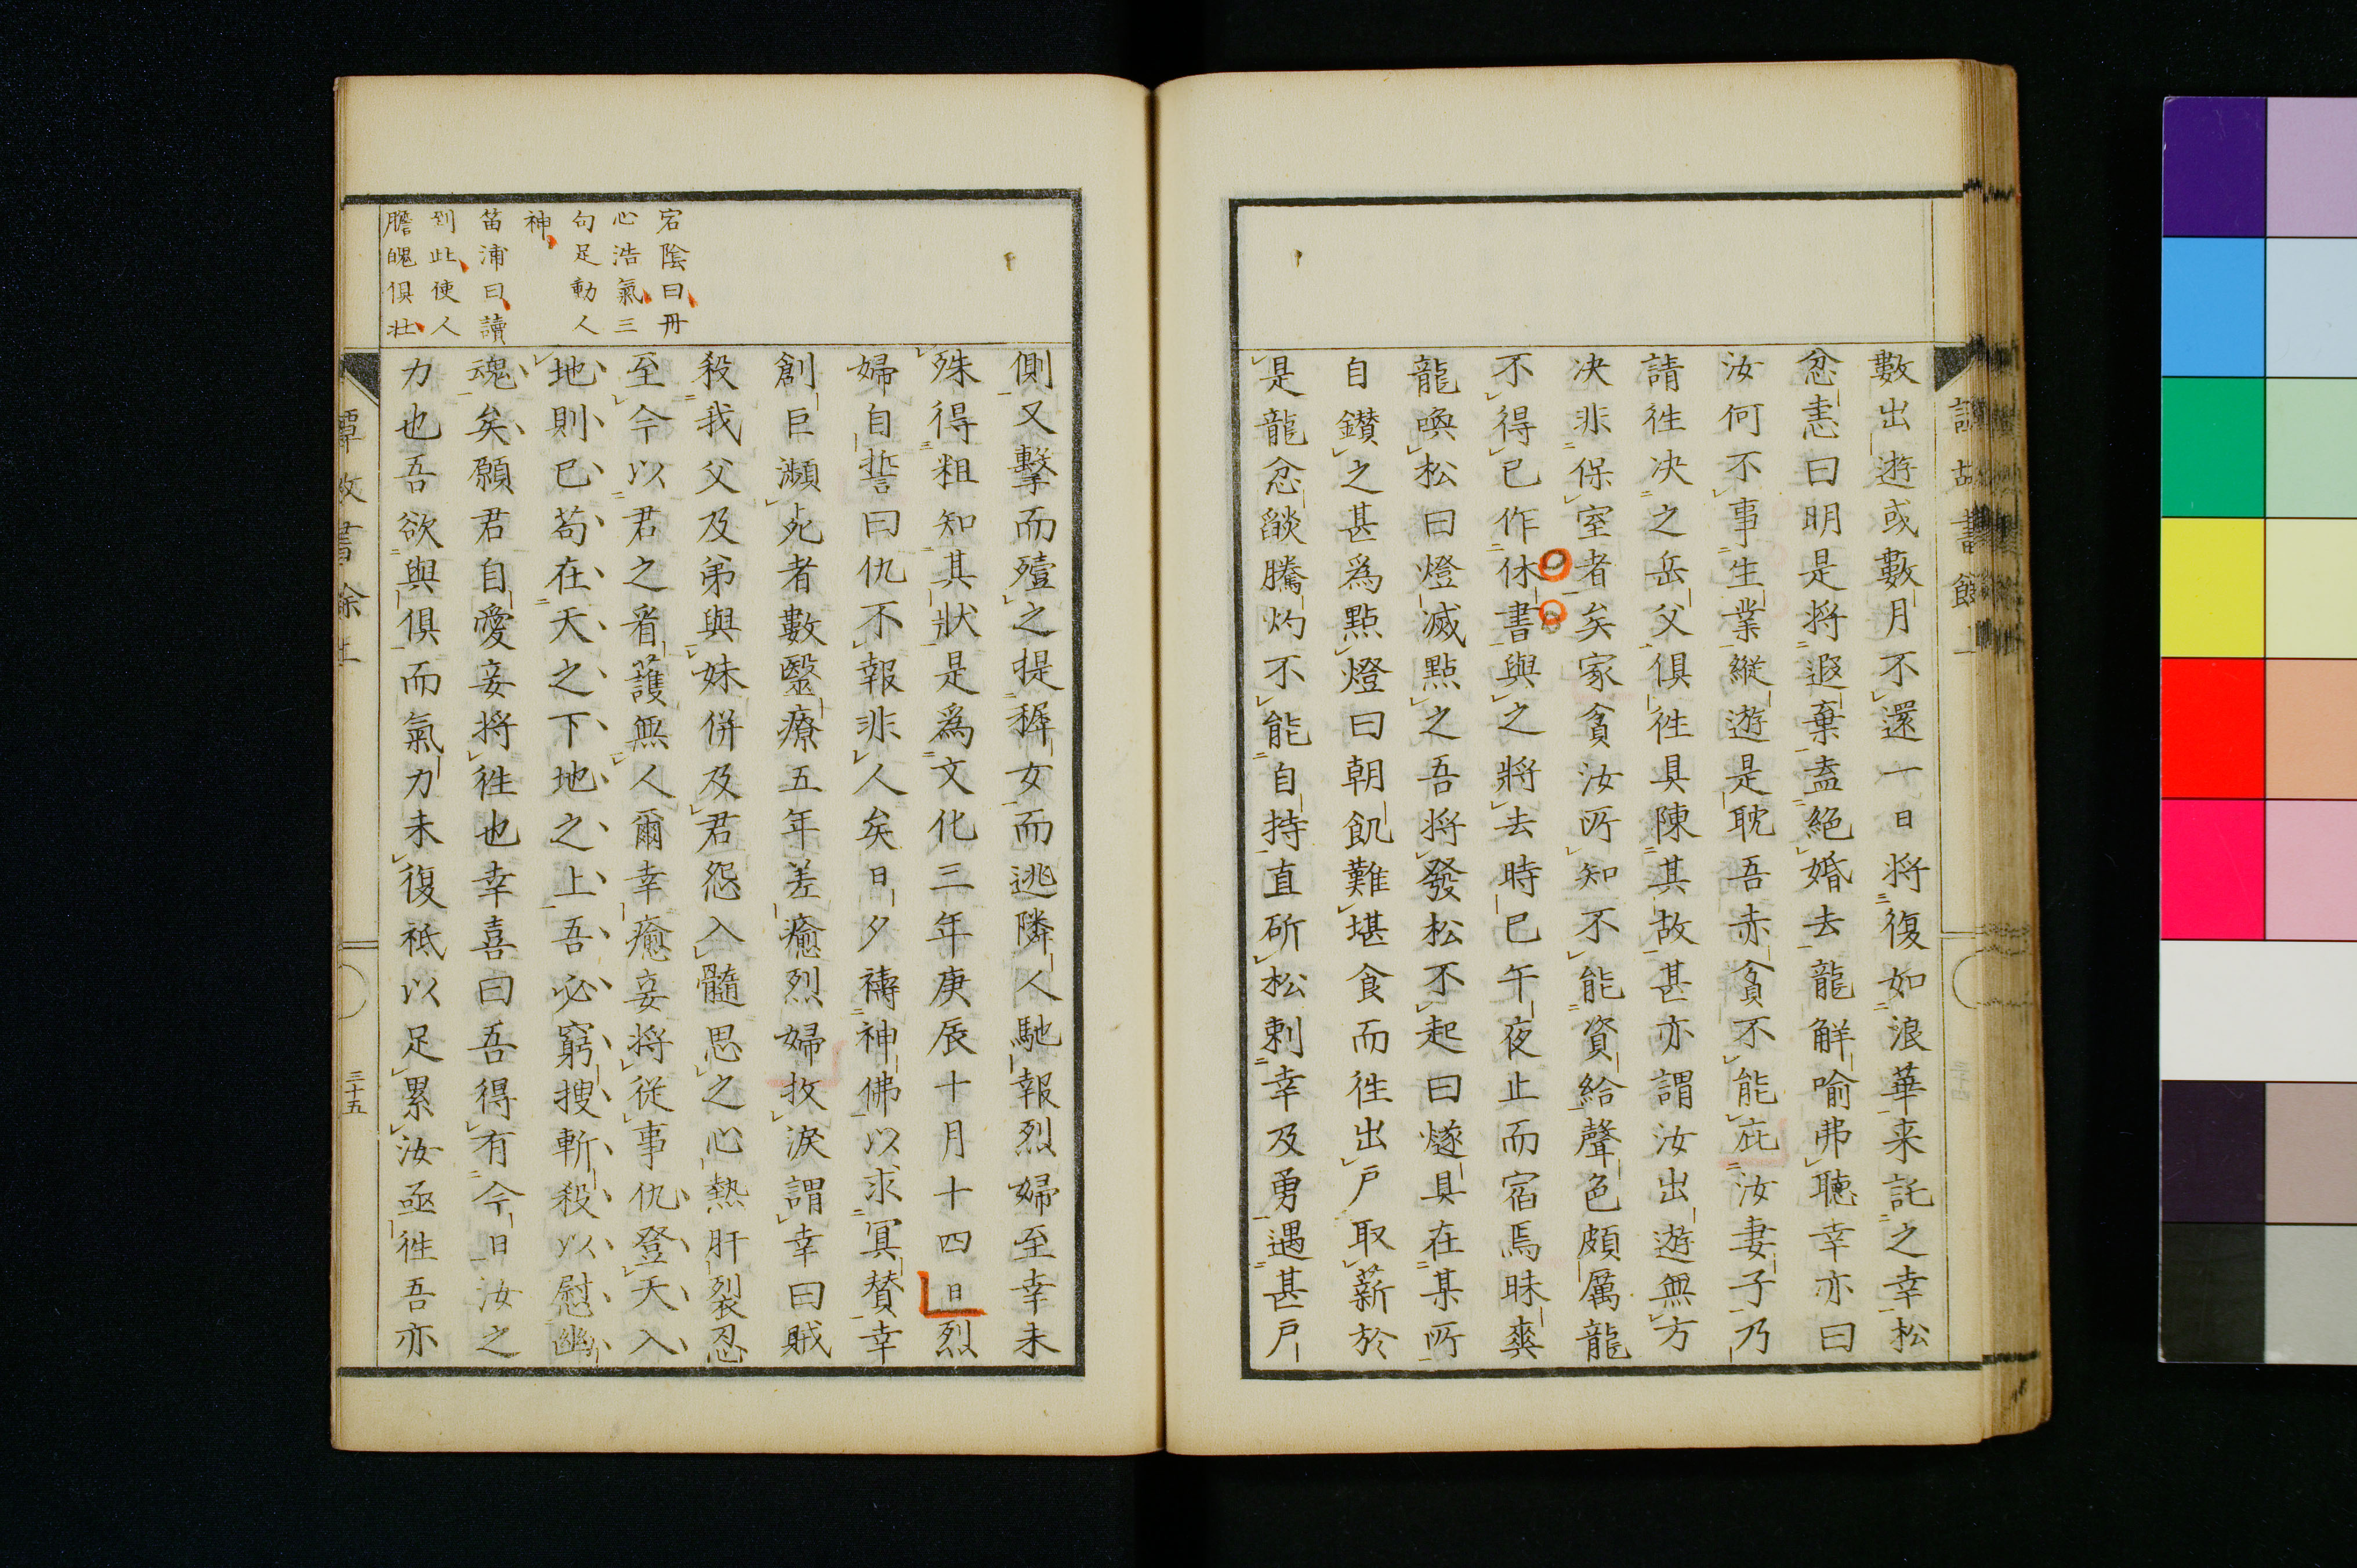 數出遊或數月不還一日將復如浪華来託之幸松
忿恚曰明是將遐棄盍絕婚去龍解喻弗聽幸亦曰
汝何不事生業縱遊是耽吾赤貧不能庇汝妻子乃
請徃决之岳父俱徃具陳其故甚亦謂汝出遊無方
决非保室者矣家貧汝所知不能資給聲色頗厲龍
不得已作休書與之將去時已午夜止而宿焉昧爽
龍喚松曰燈滅點之吾將發松不起曰燧具在某所
自鑚之甚為點燈曰朝飢難堪食而徃出戶取薪於
是龍忿燄騰灼不能自持直斫松剌幸及勇遇甚戶
側又擊而殪之提穉女而逃隣人馳報烈婦至幸未
殊得粗知其狀是為文化三年庚辰十月十四日烈
婦自誓曰仇不報非人矣日夕禱神佛以求冥賛幸
創巨瀕死者數醫療五年差癒烈婦抆淚謂幸曰賊
殺我父及弟與妹併及君怨入髓思之心熱肝裂忍
至今以君之看護無人爾幸癒妾將從事仇登天入
地則已苟在天之下地之上吾必窮搜斬殺以慰幽
魂矣願君自愛妾將徃也幸喜曰吾得有今日汝之
力也吾欲與俱而氣力未復祗以足累汝亟徃吾亦
宕陰曰冊
心浩氣三
句足動人
神
笛浦曰讀
到此使人
膽魄俱壯
三十五